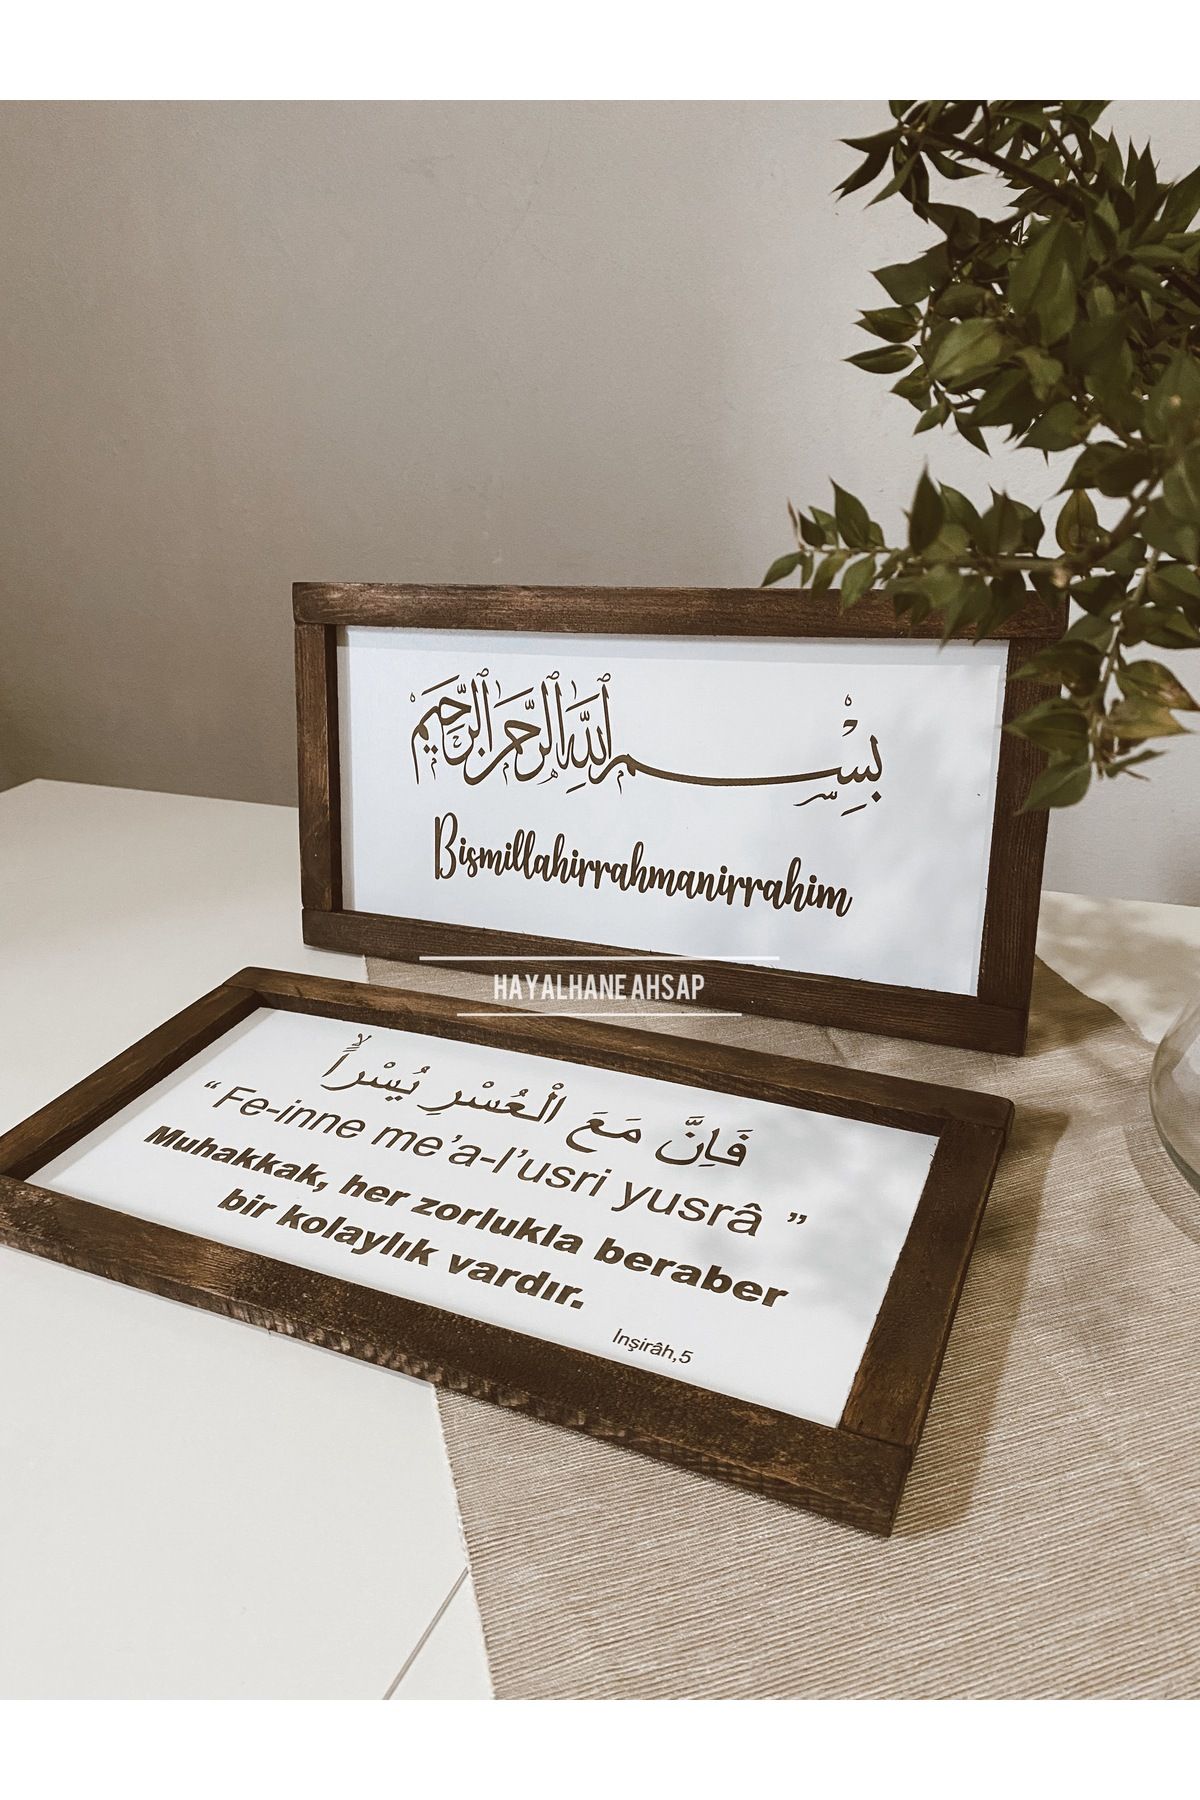 بِسْمِ ٱللَّهِ ٱلرَّحْمَٰنِ ٱلرَّحِيمِ
Bismillahirrahmanirrahim
HAYALHANE AHSAP
فَاِنَّ مَعَ الْعُسْرِ يُسْراًۙ
“ Fe-inne me’a-l’usri yusrâ ”
Muhakkak, her zorlukla beraber
bir kolaylık vardır.
İnşirâh,5